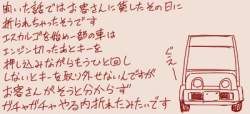 聞いた話ではお客さんに貸したその日に
折られちゃったそうです
エスカルゴを始め一部の車は
エンジン切ったあとキーを
押し込みながらもうひと回し
しないとキーを取り外せないんですが
お客さんがそうと知らず
ガチャガチャやる内折れたみたいです
ぐえー